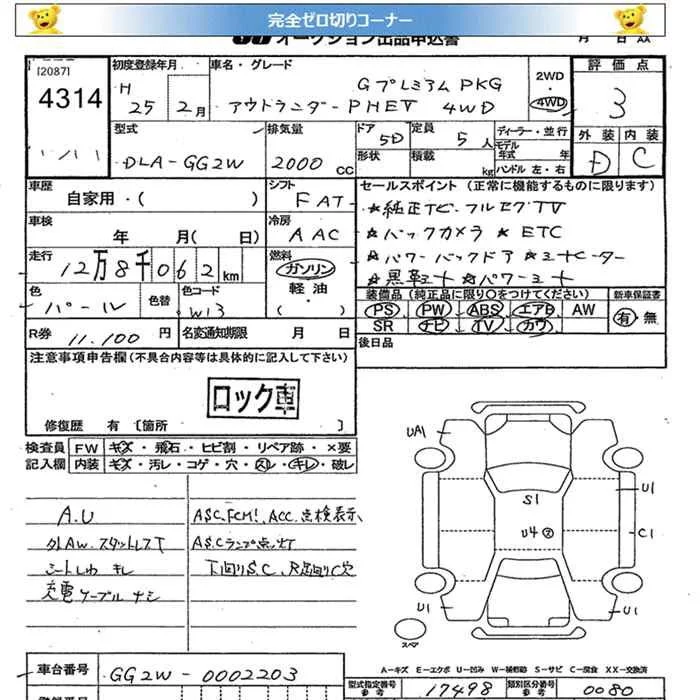 完全ゼロ切りコーナー
オークション出品申込書
月 日 AA
[2087]
4314
初度登録年月
H 25 2月
車名・グレード
Gプレミアム PKG
アウトランダーPHEV 4WD
2WD・4WD
評価点
3
外装 内装
D C
型式
DLA-GG2W
排気量
2000 CC
ドア 5D
形状
定員 5人
積載 kg
ディーラー・並行
モデル年式 年
ハンドル 左・右
車歴
自家用・( )
シフト
FAT
車検
年 月( 日)
冷房
AAC
走行
12万8千062km
燃料
ガソリン
軽油
色
パール
色替
色コード
W13
R券 11.100円
名変通知期限 月 日
セールスポイント (正常に機能するものに限ります)
★純正TC.フルセグTV
★バックカメラ ★ETC
★パワーバックドア ★ミトヒーター
★黒革シート ★パワーシート
装備品 (純正品に限り〇をつけてください)
PS PW ABS エアB AW
SR ナビ TV カワ
新車保証書
有・無
後日品
注意事項申告欄(不具合内容等は具体的に記入して下さい)
ロック車
修復歴 有 [箇所 ]
検査員記入欄
FW キズ・飛石・ヒビ割・リペア跡・×要
内装 キズ・汚レ・コゲ・穴・スレ・キレ・破レ
A.U
外AW.スタットレスT
シートしわ キレ
充電ケーブル ナシ
ASC.FCM!.ACC.点検表示
ASCランプ点灯
下回りS.C、R足回りC穴
UA1
S1
U4
U1
C1
U1
U1
スペア
A-キズ E-エクボ U-凹み W-補修跡 S-サビ C-腐食 XX-交換済
車台番号
GG2W-0002203
型式指定番号 参考
17498
類別区分番号 参考
0080